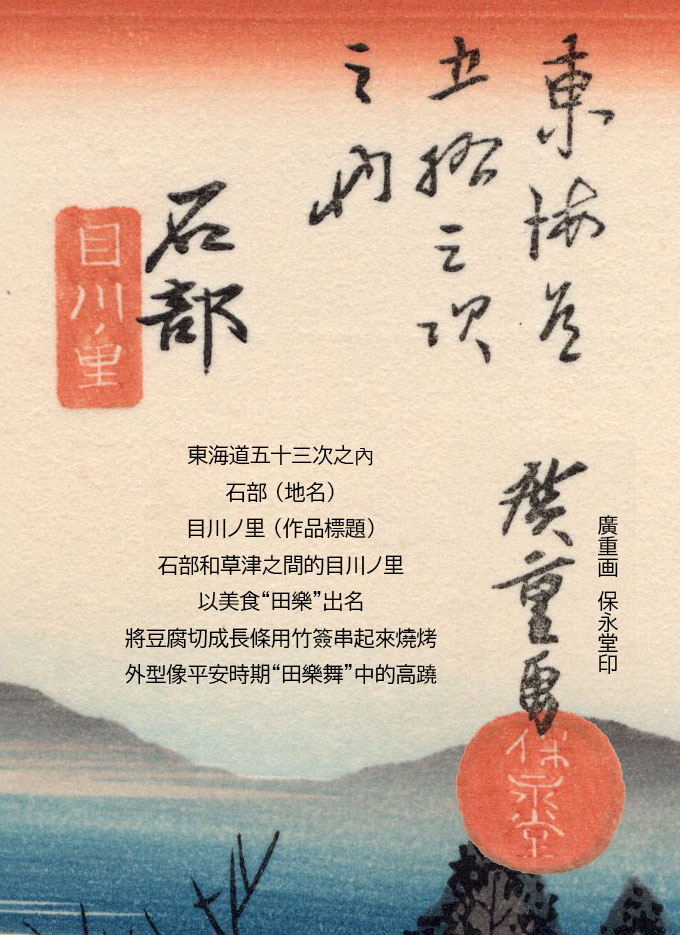 東海道
五拾三次
之内
石部
目川ノ里
東海道五十三次之內
石部（地名）
目川ノ里（作品標題）
石部和草津之間的目川ノ里
以美食“田樂”出名
將豆腐切成長條用竹簽串起來燒烤
外型像平安時期“田樂舞”中的高蹺
廣重画
保永堂
廣重画 保永堂印